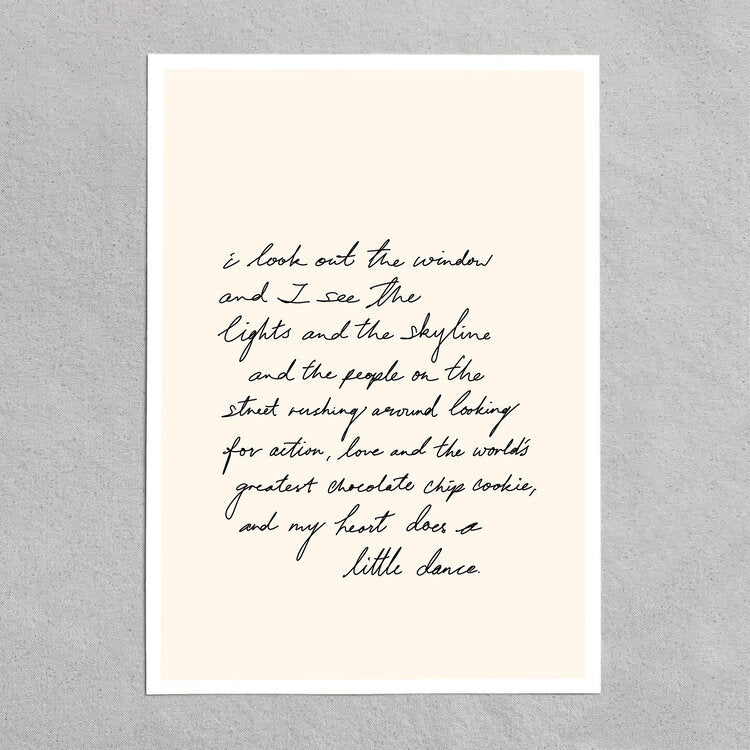 i look out the window
and I see the
lights and the skyline
and the people on the
street rushing around looking
for action, love and the world's
greatest chocolate chip cookie,
and my heart does a
little dance.